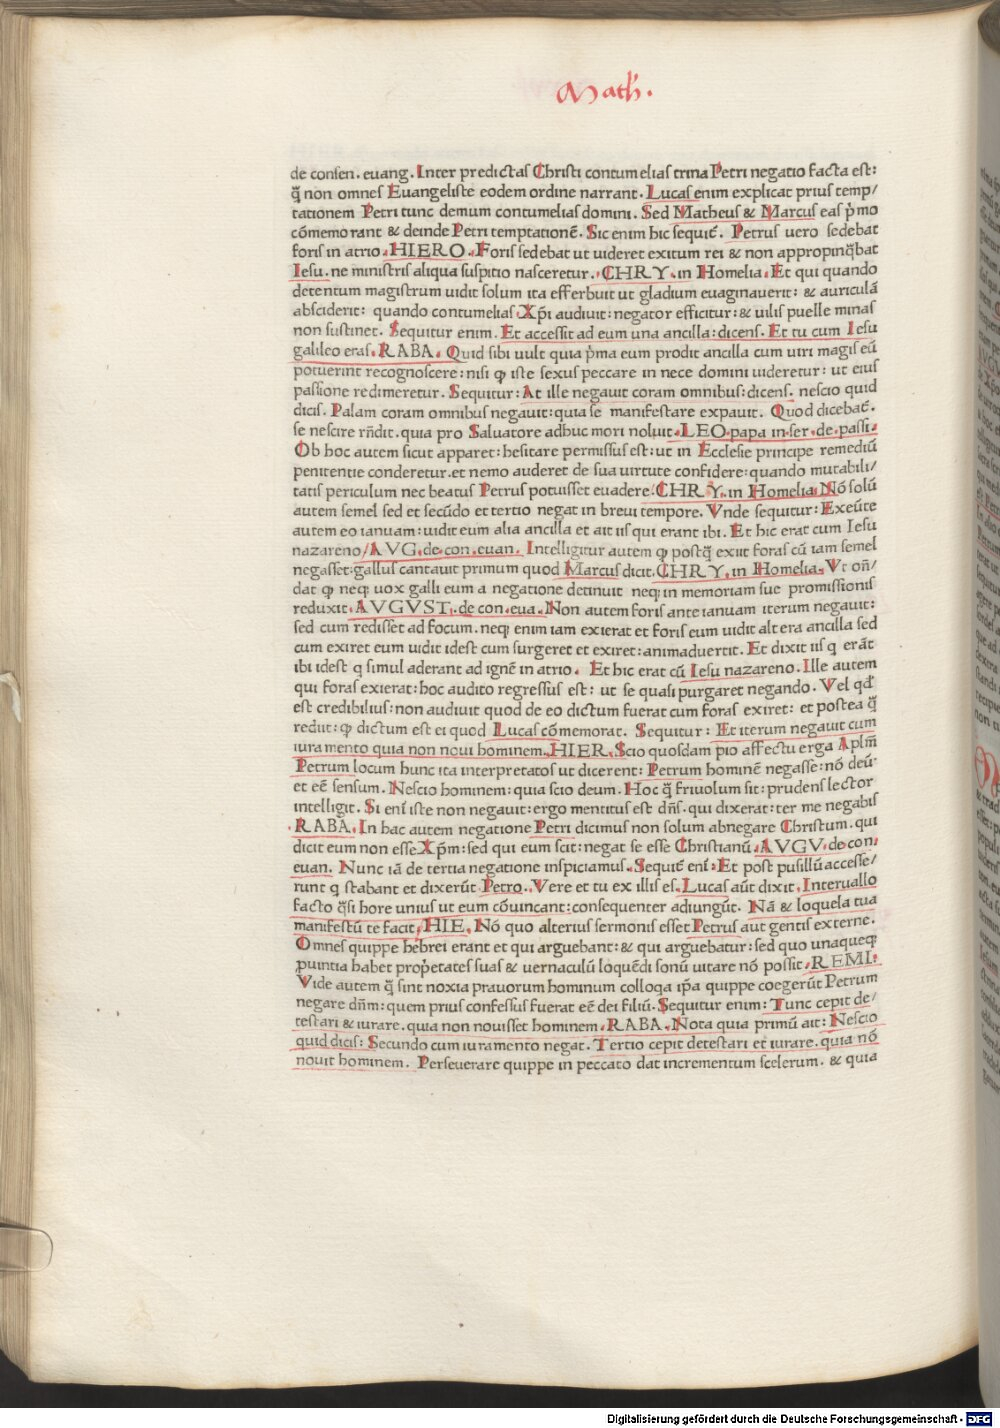 Math.
de consen. euang. Inter predictas Christi contumelias trina Petri negatio facta est:
q̃ non omnes Euangeliste eodem ordine narrant. Lucas enim explicat prius temp/
tationem Petri tunc demum contumelias domini. Sed Matheus & Marcus eas p̃mo
cõmemorant & deinde Petri temptationẽ. Sic enim hic sequit̃. Petrus uero sedebat
foris in atrio. HIERO. Foris sedebat ut uideret exitum rei & non appropinq̃bat
Iesu. ne ministris aliqua suspitio nasceretur. CHRY. in Homelia. Et qui quando
detentum magistrum uidit solum ita efferbuit ut gladium euaginauerit: & auriculã
absciderit: quando contumelias Xp̃i audiuit: negator efficitur: & uilis puelle minas
non sustinet. Sequitur enim. Et accessit ad eum una ancilla: dicens. Et tu cum Iesu
galileo eras. RABA. Quid sibi uult quia p̃ma eum prodit ancilla cum uiri magis eũ
potuerint recognoscere: nisi ꝙ iste sexus peccare in nece domini uideretur: ut eius
passione redimeretur. Sequitur: At ille negauit coram omnibus: dicens. nescio quid
dicis. Palam coram omnibus negauit: quia se manifestare expauit. Quod dicebat̃.
se nescire rñdit. quia pro Saluatore adhuc mori noluit. LEO papa in ser. de passi.
Ob hoc autem sicut apparet: hesitare permissus est: ut in Ecclesie principe remediũ
penitentie conderetur. et nemo auderet de sua uirtute confidere: quando mutabili/
tatis periculum nec beatus Petrus potuisset euadere. CHRY. in Homelia. Nõ solũ
autem semel sed et secũdo et tertio negat in breui tempore. Vnde sequitur: Exeũte
autem eo ianuam: uidit eum alia ancilla et ait iis qui erant ibi. Et hic erat cum Iesu
nazareno/ AVG. de con. euan. Intelligitur autem ꝙ postq̃ exiit foras cũ iam semel
negasset: gallus cantauit primum quod Marcus dicit. CHRY. in Homelia. Vt oñ/
dat ꝙ neq; uox galli eum a negatione detinuit neq; in memoriam sue promissionis
reduxit. AVGVST. de con. eua. Non autem foris ante ianuam iterum negauit:
sed cum redisset ad focum. neq; enim iam exierat et foris eum uidit altera ancilla sed
cum exiret eum uidit idest cum surgeret et exiret: animaduertit. Et dixit iis q erãt
ibi idest q simul aderant ad ignẽ in atrio. Et hic erat cũ Iesu nazareno. Ille autem
qui foras exierat: hoc audito regressus est: ut se quasi purgaret negando. Vel qđ
est credibilius: non audiuit quod de eo dictum fuerat cum foras exiret: et postea q̃
rediit: ꝙ dictum est ei quod Lucas cõmemorat. Sequitur: Et iterum negauit cum
iuramento quia non noui hominem. HIER. Scio quosdam pio affectu erga Aplm̃
Petrum locum hunc ita interpretatos ut dicerent: Petrum hominẽ negasse: nõ deũ.
et eẽ sensum. Nescio hominem: quia scio deum. Hoc q̃ friuolum sit: prudens lector
intelligit. Si enĩ iste non negauit: ergo mentitus est dñs. qui dixerat: ter me negabis
RABA. In hac autem negatione Petri dicimus non solum abnegare Christum. qui
dicit eum non esse Xp̃m: sed qui eum scit: negat se esse Christianũ. AVGV. de con.
euan. Nunc iã de tertia negatione inspiciamus. Sequit̃ enĩ: Et post pusillũ accesse/
runt q stabant et dixerũt Petro. Vere et tu ex illis es. Lucas aũt dixit. Interuallo
facto q̃si hore unius ut eum cõuincant: consequenter adiungũt. Nã & loquela tua
manifestũ te facit. HIE. Nõ quo alterius sermonis esset Petrus aut gentis externe.
Omnes quippe hebrei erant et qui arguebant: & qui arguebatur: sed quo unaqueq;
puintia habet prop̃etates suas & uernaculũ loquẽdi sonũ uitare nõ possit. REMI.
Vide autem q̃ sint noxia prauorum hominum colloqa ip̃a quippe coegerũt Petrum
negare dñm: quem prius confessus fuerat eẽ dei filiũ. Sequitur enim: Tunc cepit de/
testari & iurare. quia non nouisset hominem. RABA. Nota quia primũ ait: Nescio
quid dicis: Secundo cum iuramento negat. Tertio cepit detestari et iurare. quia nõ
nouit hominem. Perseuerare quippe in peccato dat incrementum scelerum. & quia
Digitalisierung gefördert durch die Deutsche Forschungsgemeinschaft - DFG